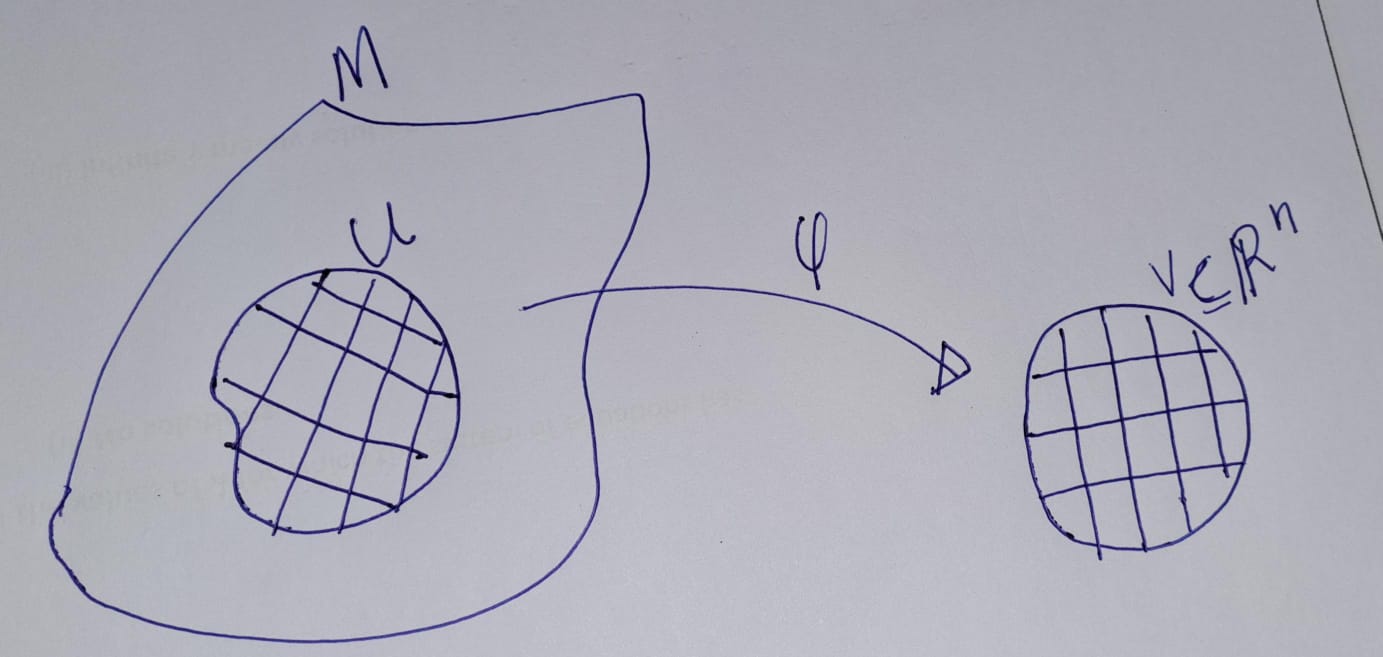 M
U
φ
V⊆ℝⁿ